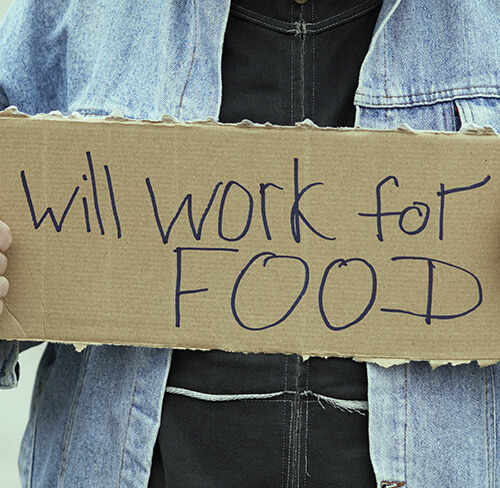 Will Work for
FOOD